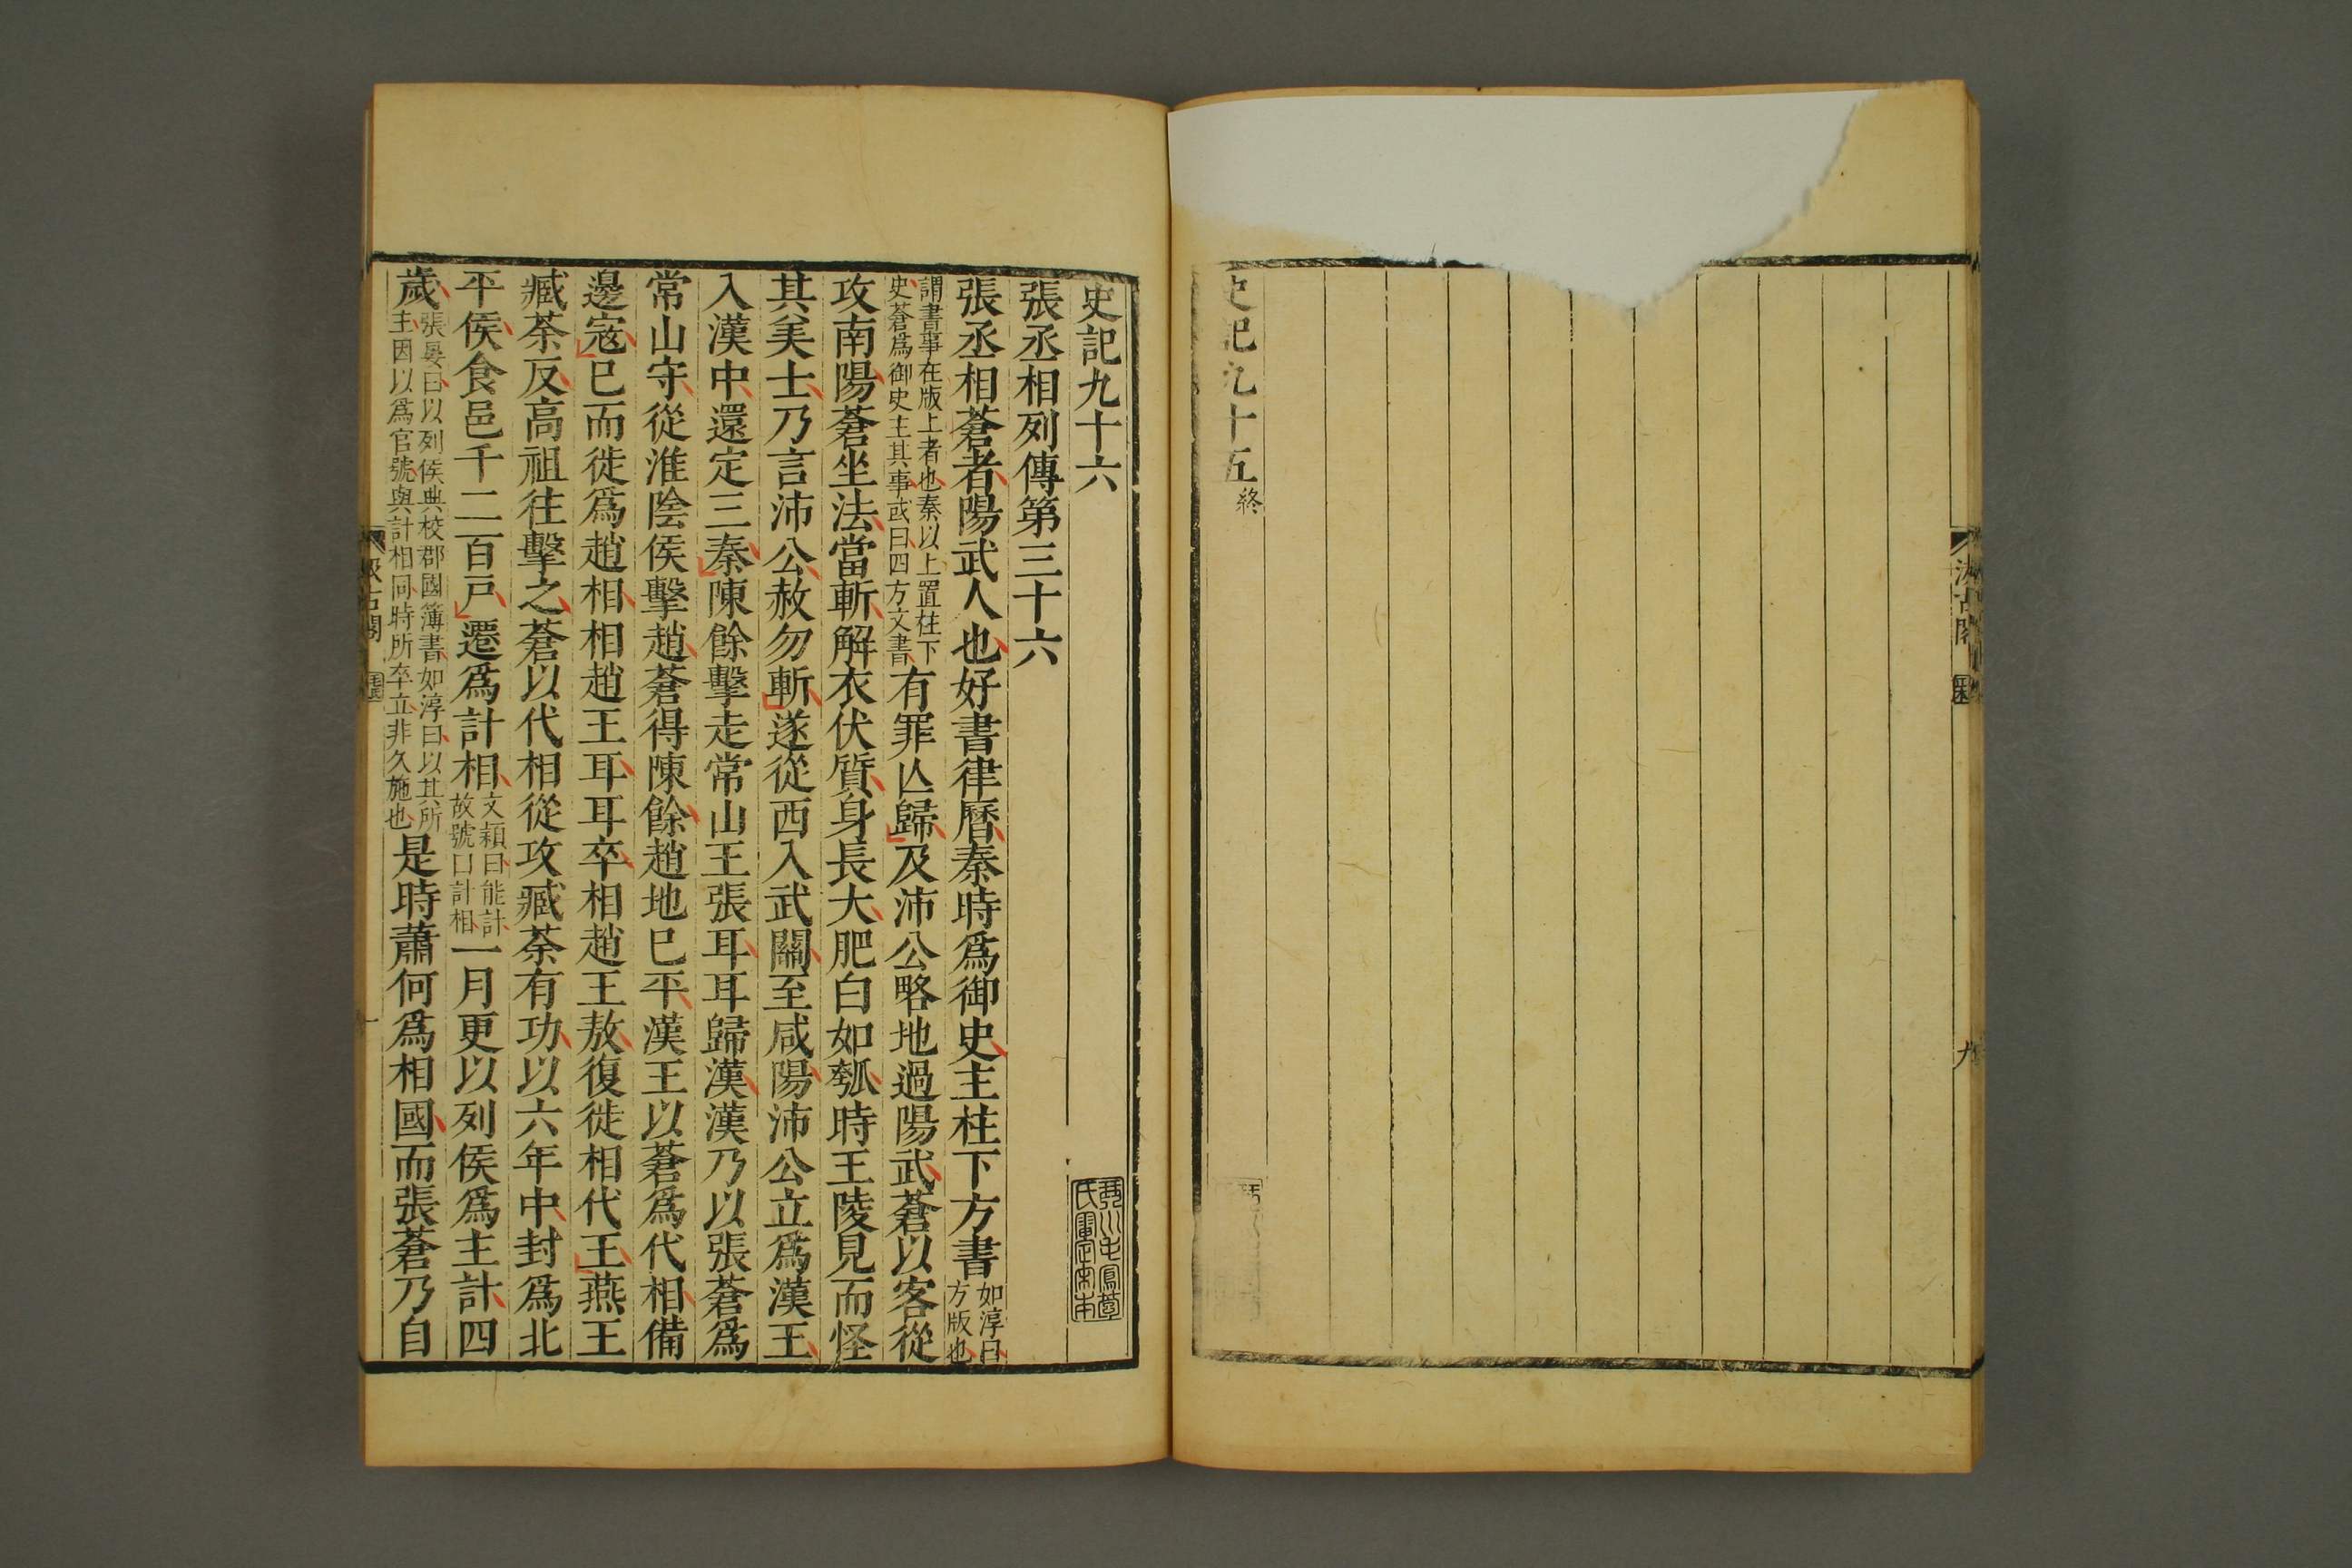 史記九十五終
史記九十六
張丞相列傳第三十六
張丞相蒼者陽武人也好書律曆秦時爲御史主柱下方書如淳曰方版也
謂書事在版上者也秦以上置柱下史蒼爲御史主其事或曰四方文書有罪亾歸及沛公略地過陽武蒼以客從
攻南陽蒼坐法當斬解衣伏質身長大肥白如瓠時王陵見而怪
其美士乃言沛公赦勿斬遂從西入武關至咸陽沛公立爲漢王
入漢中還定三秦陳餘擊走常山王張耳耳歸漢漢乃以張蒼爲
常山守從淮陰侯擊趙蒼得陳餘趙地已平漢王以蒼爲代相備
邊寇已而徙爲趙相相趙王耳耳卒相趙王敖復徙相代王燕王
臧荼反高祖往擊之蒼以代相從攻臧荼有功以六年中封爲北
平侯食邑千二百戸遷爲計相文穎曰能計故號曰計相一月更以列侯爲主計四
歲張晏曰以列侯典校郡國簿書如淳曰以其所主因以爲官號與計相同時所卒立非久施也是時蕭何爲相國而張蒼乃自